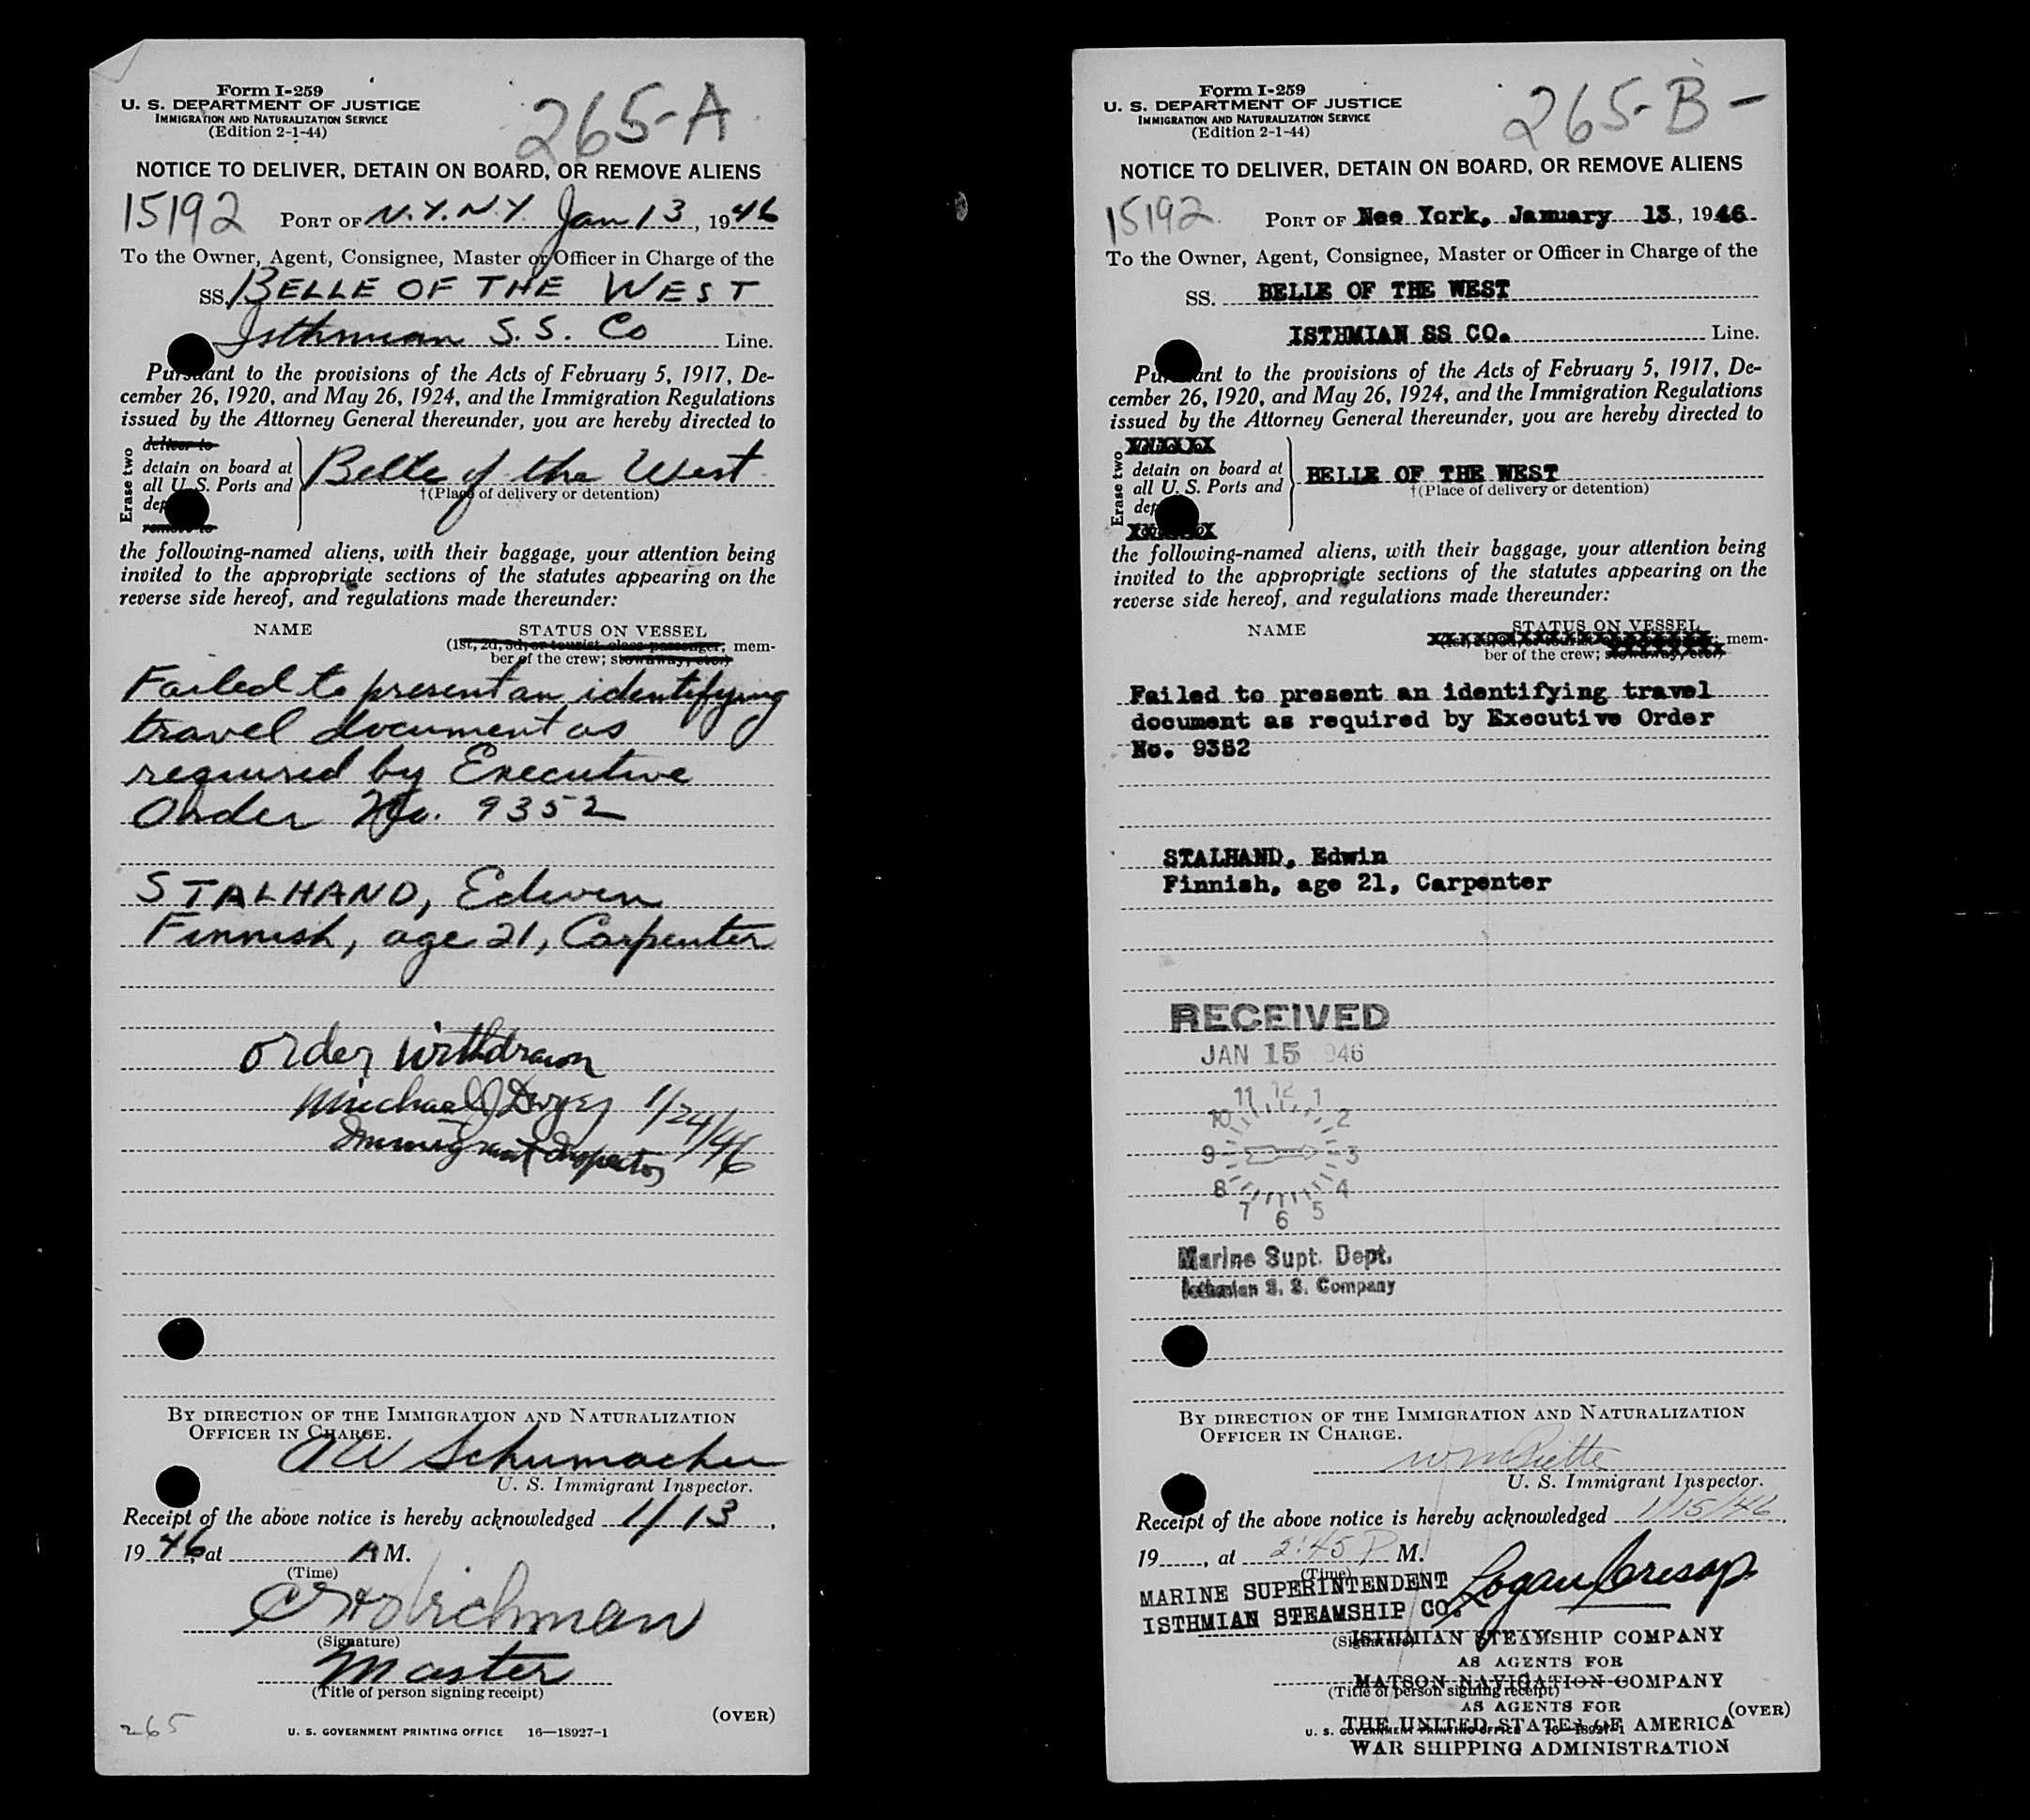 Form I-259
U. S. DEPARTMENT OF JUSTICE
IMMIGRATION AND NATURALIZATION SERVICE
(Edition 2-1-44)
265-A
NOTICE TO DELIVER, DETAIN ON BOARD, OR REMOVE ALIENS
15192
PORT OF N.Y.N.Y. Jan 13, 1946
To the Owner, Agent, Consignee, Master or Officer in Charge of the
SS. BELLE OF THE WEST
Isthmian S.S. Co Line.
Pursuant to the provisions of the Acts of February 5, 1917, De-
cember 26, 1920, and May 26, 1924, and the Immigration Regulations
issued by the Attorney General thereunder, you are hereby directed to
Erase two
deliver to
detain on board at
all U. S. Ports and
dep
remove to
Belle of the West
†(Place of delivery or detention)
the following-named aliens, with their baggage, your attention being
invited to the appropriate sections of the statutes appearing on the
reverse side hereof, and regulations made thereunder:
NAME STATUS ON VESSEL
(1st, 2d, 3d, or tourist class passenger; mem-
ber of the crew; stowaway, etc.)
Failed to present an identifying
travel document as
required by Executive
Order No. 9352
STALHAND, Edwin
Finnish, age 21, Carpenter
order withdrawn
Michael J Dwyer 1/24/46
Immigrant Inspector
BY DIRECTION OF THE IMMIGRATION AND NATURALIZATION
OFFICER IN CHARGE.
AW Schumacher
U. S. Immigrant Inspector.
Receipt of the above notice is hereby acknowledged 1/13,
1946, at A M.
(Time)
(Signature)
Master
(Title of person signing receipt)
(OVER)
265
U. S. GOVERNMENT PRINTING OFFICE 16—18927-1
Form I-259
U. S. DEPARTMENT OF JUSTICE
IMMIGRATION AND NATURALIZATION SERVICE
(Edition 2-1-44)
265-B-
NOTICE TO DELIVER, DETAIN ON BOARD, OR REMOVE ALIENS
15192
PORT OF Nee York, January 13, 1946
To the Owner, Agent, Consignee, Master or Officer in Charge of the
SS. BELLE OF THE WEST
ISTHMIAN SS CO. Line.
Pursuant to the provisions of the Acts of February 5, 1917, De-
cember 26, 1920, and May 26, 1924, and the Immigration Regulations
issued by the Attorney General thereunder, you are hereby directed to
Erase two
XXXXXX
detain on board at
all U. S. Ports and
dep
XXXXXX
BELLE OF THE WEST
†(Place of delivery or detention)
the following-named aliens, with their baggage, your attention being
invited to the appropriate sections of the statutes appearing on the
reverse side hereof, and regulations made thereunder:
NAME STATUS ON VESSEL
mem-
ber of the crew; stowaway, etc.)
Failed to present an identifying travel
document as required by Executive Order
No. 9352
STALHAND, Edwin
Finnish, age 21, Carpenter
RECEIVED
JAN 15 946
12 1 2 3 4 5 6 7 8 9 10 11
Marine Supt. Dept.
Isthmian S. S. Company
BY DIRECTION OF THE IMMIGRATION AND NATURALIZATION
OFFICER IN CHARGE.
U. S. Immigrant Inspector.
Receipt of the above notice is hereby acknowledged 1/15/46,
19, at 2:45 P M.
(Time)
MARINE SUPERINTENDENT
ISTHMIAN STEAMSHIP CO.
Logan Cresap
(Signature)
ISTHMIAN STEAMSHIP COMPANY
AS AGENTS FOR
MATSON NAVIGATION COMPANY
(Title of person signing receipt)
AS AGENTS FOR
(OVER)
THE UNITED STATES OF AMERICA
U. S. GOVERNMENT PRINTING OFFICE 16—18927-1
WAR SHIPPING ADMINISTRATION